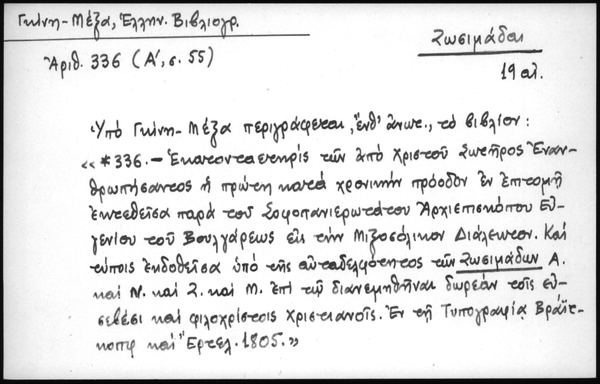 Γκίνη-Μέξα, Ἑλλην. Βιβλιογρ.
Ἀριθ. 336 (Α', σ. 55)
Ζωσιμάδαι
19 αἰ.
Ὑπό Γκίνη-Μέξα περιγράφεται, ἔνθ' ἀνωτ., τό βιβλίον:
«*336.- Ἑκατονταετηρίς τῶν ἀπό Χριστοῦ Σωτῆρος Ἐναν-
θρωπήσαντος ἡ πρώτη κατά χρονικήν πρόοδον ἐν ἐπιτομῇ
ἐκτεθεῖσα παρά τοῦ Σοφοπανιερωτάτου Ἀρχιεπισκόπου Εὐ-
γενίου τοῦ Βουλγάρεως εἰς τήν Μιξοσόλικον Διάλεκτον. Καί
τύποις ἐνδοθεῖσα ὑπό τῆς αὐταδελφότητος τῶν Ζωσιμάδων Α.
καί Ν. καί Ζ. καί Μ. ἐπί τῷ διανεμηθῆναι δωρεάν τοῖς εὐ-
σεβέσι καί φιλοχρίστοις Χριστιανοῖς. Ἐν τῇ Τυπογραφίᾳ Βράϊτ-
κοπφ καί Ἔρτελ. 1805.»